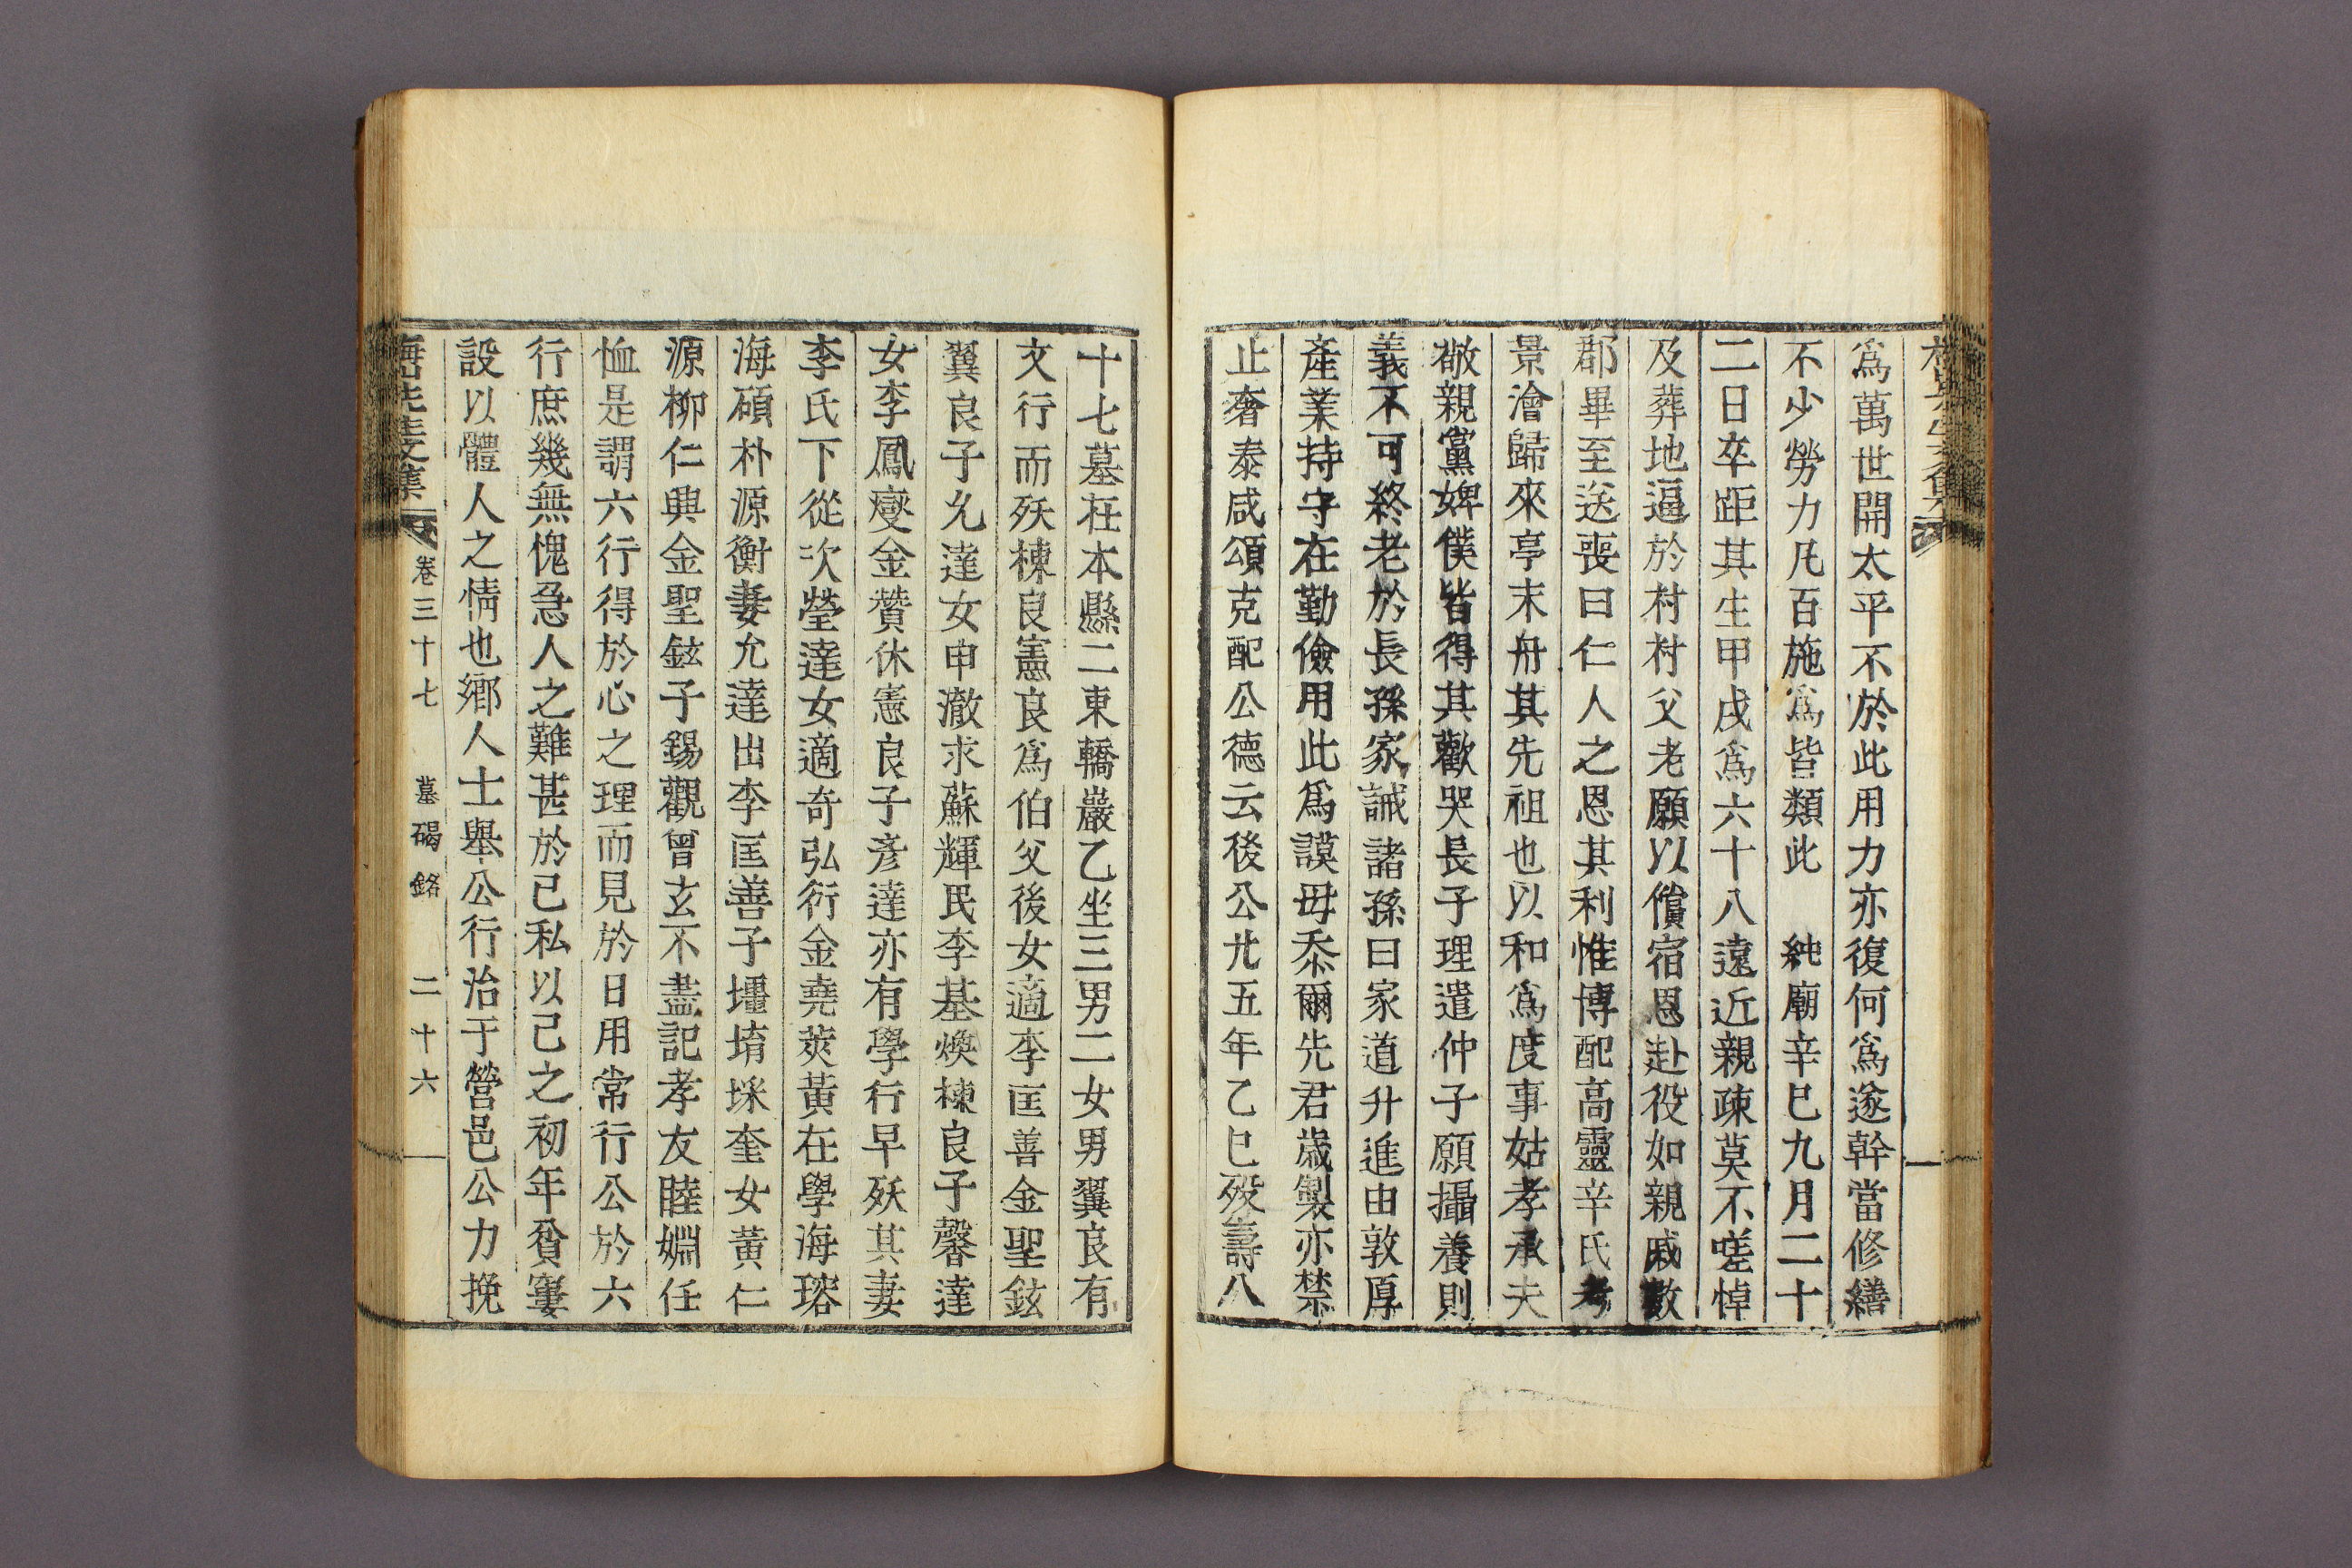 爲萬世開太平不於此用力亦復何爲遂幹當修繕
不少勞力凡百施爲皆類此 純廟辛巳九月二十
二日卒距其生甲戌爲六十八遠近親疎莫不嗟悼
及葬地逼於村村父老願以償宿恩赴役如親戚數
郡畢至送喪曰仁人之恩其利惟博配高靈辛氏考
景澮歸來亭末舟其先祖也以和爲度事姑孝承夫
敬親黨婢僕皆得其歡哭長子理遣仲子願攝養則
義不可終老於長孫家誡諸孫曰家道升進由敦厚
產業持守在勤儉用此爲謨毋忝爾先君歲製亦禁
止奢泰咸頌克配公德云後公廿五年乙巳歿壽八
十七墓在本縣二東轎巖乙坐三男二女男翼良有
文行而殀棟良憲良爲伯父後女適李匡善金聖鉉
翼良子允達女申澈求蘇輝民李基煥棟良子馨達
女李鳳燮金贊休憲良子彥達亦有學行早殀其妻
李氏下從次瑩達女適奇弘衍金堯莢黃在學海瑢
海碩朴源衡妻允達出李匡善子墐堉埰奎女黃仁
源柳仁興金聖鉉子錫觀曾玄不盡記孝友睦婣任
恤是謂六行得於心之理而見於日用常行公於六
行庶幾無愧急人之難甚於己私以己之初年貧窶
設以體人之情也鄉人士舉公行治于營邑公力挽
卷三十七 墓碣銘 二十六